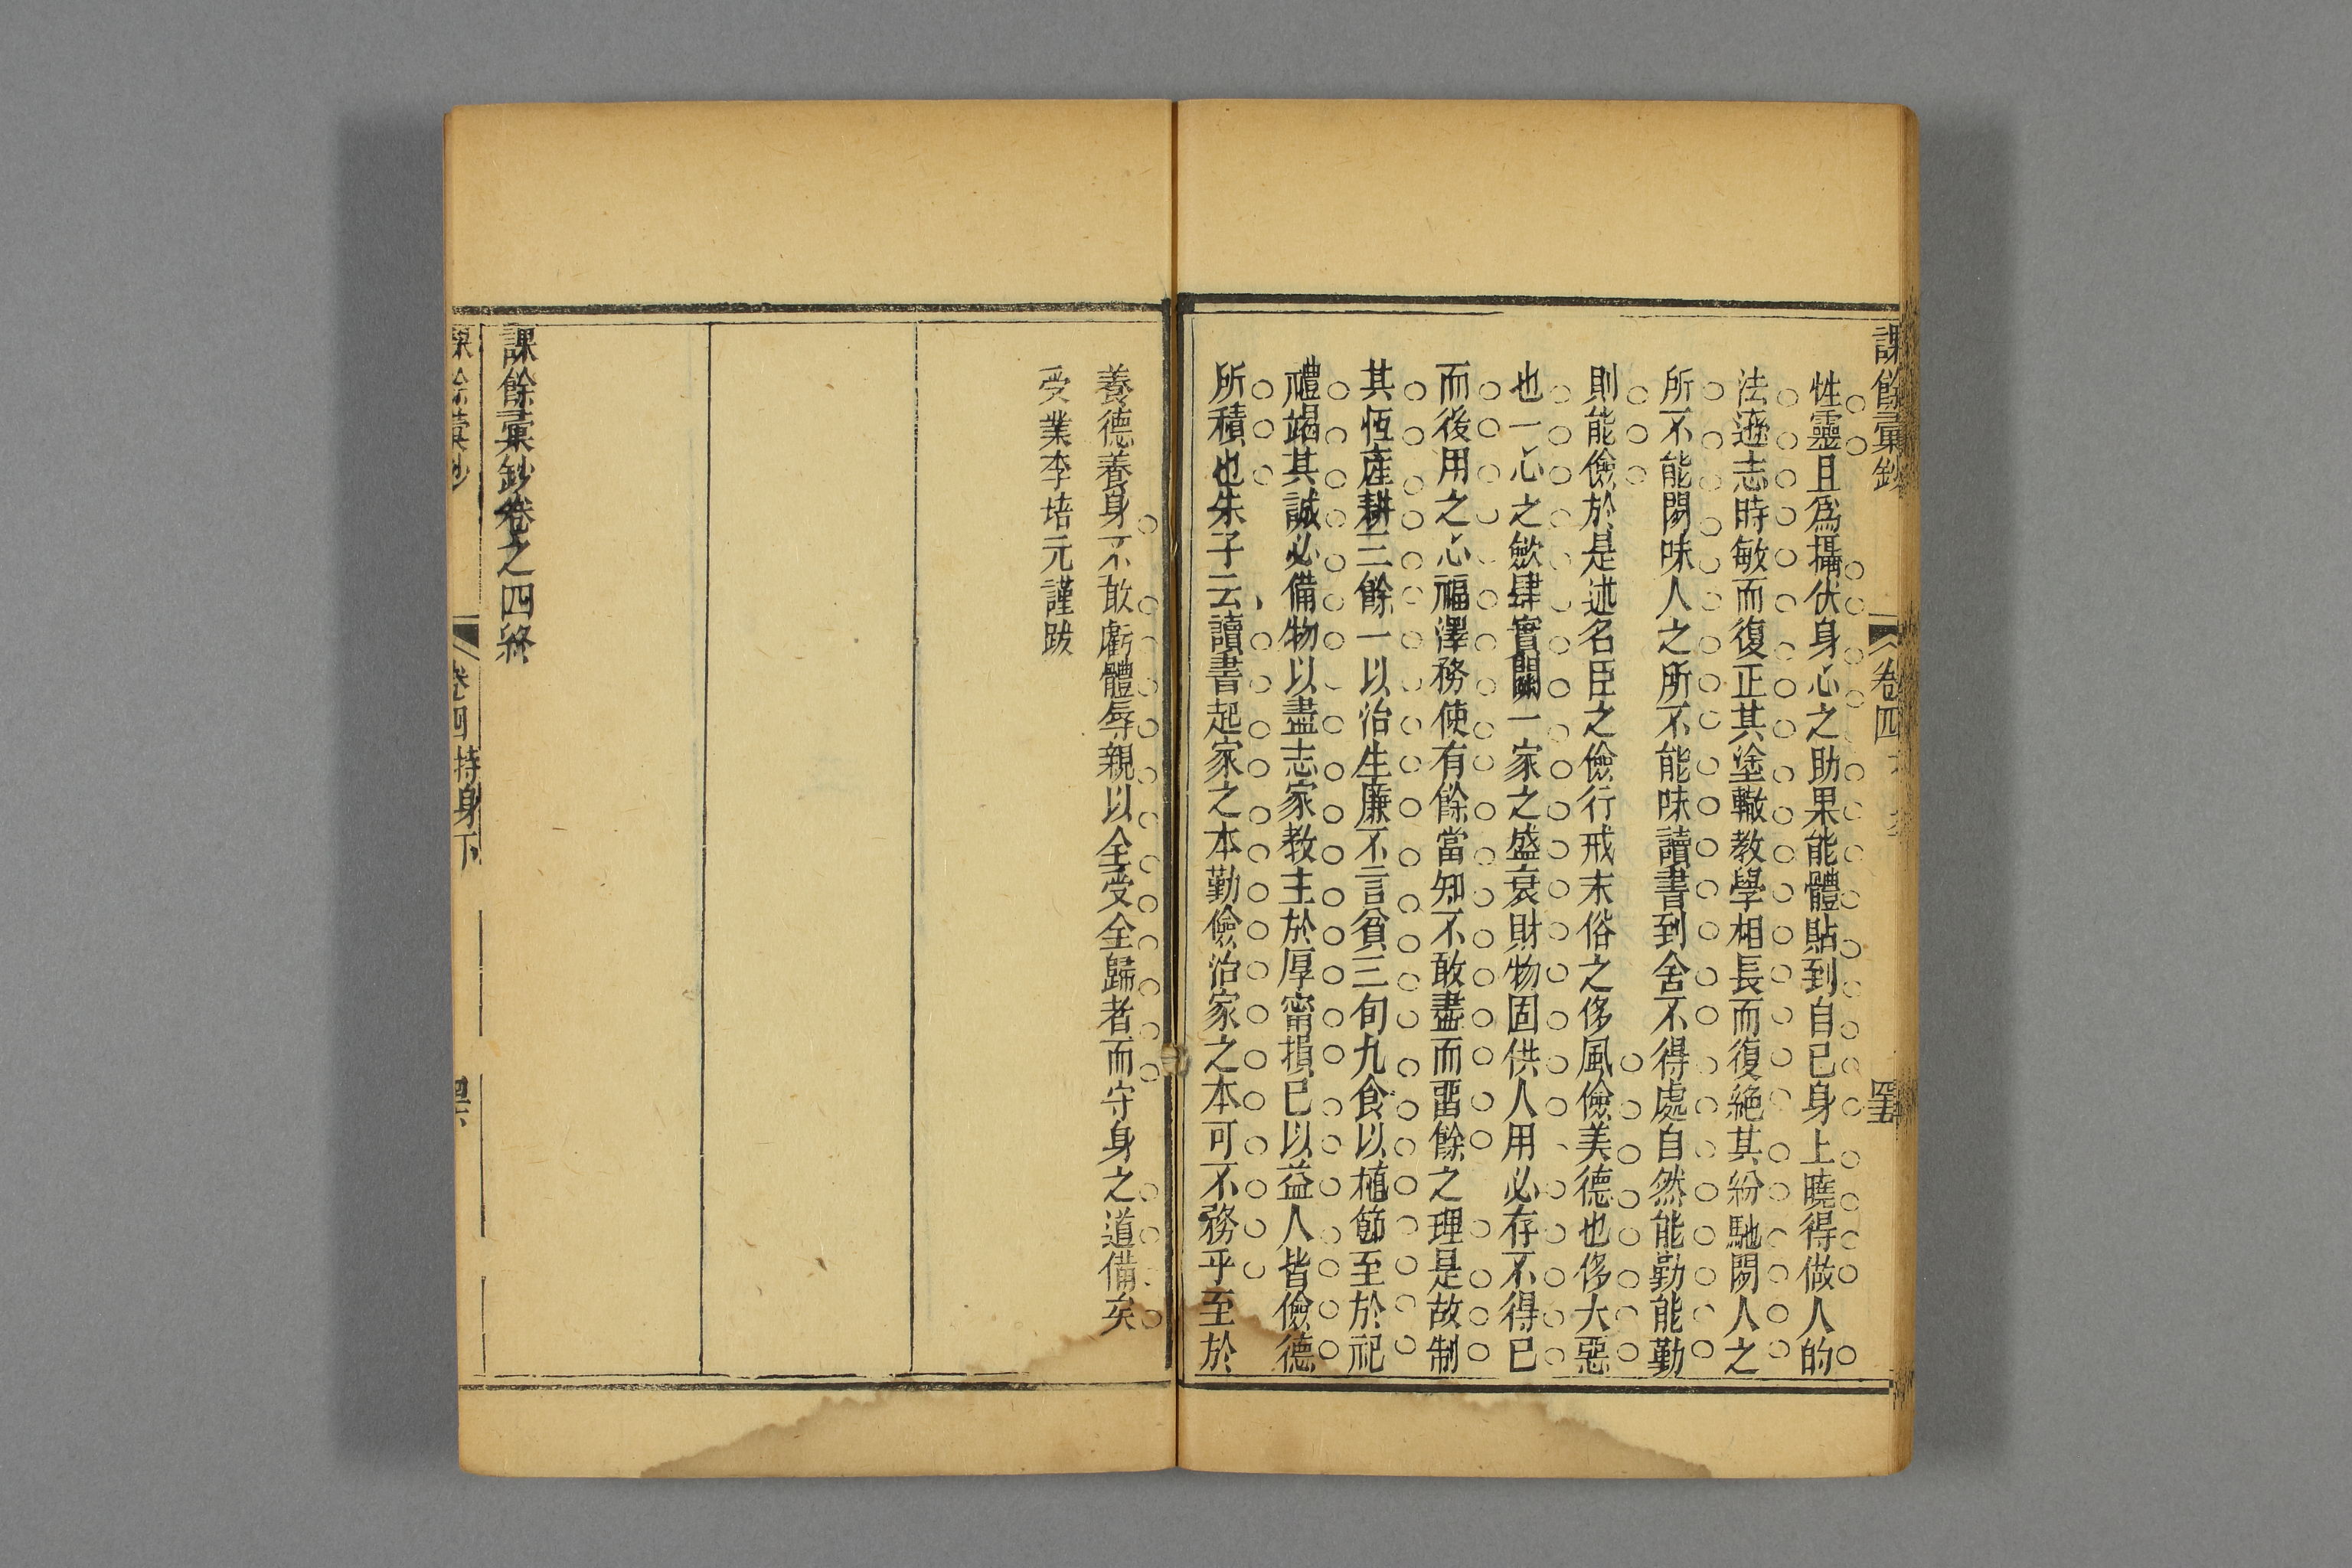 課餘彙鈔 卷四 四五
性靈且爲攝伏身心之助果能體貼到自已身上曉得做人的
法遜志時敏而復正其塗轍教學相長而復絕其紛馳閱人之
所不能閱味人之所不能味讀書到舍不得處自然能勤能勤
則能儉於是述名臣之儉行戒末俗之侈風儉美德也侈大惡
也一心之歛肆實關一家之盛衰財物固供人用必存不得已
而後用之心福澤務使有餘當知不敢盡而畱餘之理是故制
其恆產耕三餘一以治生廉不言貧三旬九食以植節至於祀
禮竭其誠必備物以盡志家教主於厚甯損已以益人皆儉德
所積也朱子云讀書起家之本勤儉治家之本可不務乎至於
養德養身不敢虧體辱親以全受全歸者而守身之道備矣
受業李培元謹跋
課餘彙鈔卷之四終
課餘彙鈔 卷四 持身下